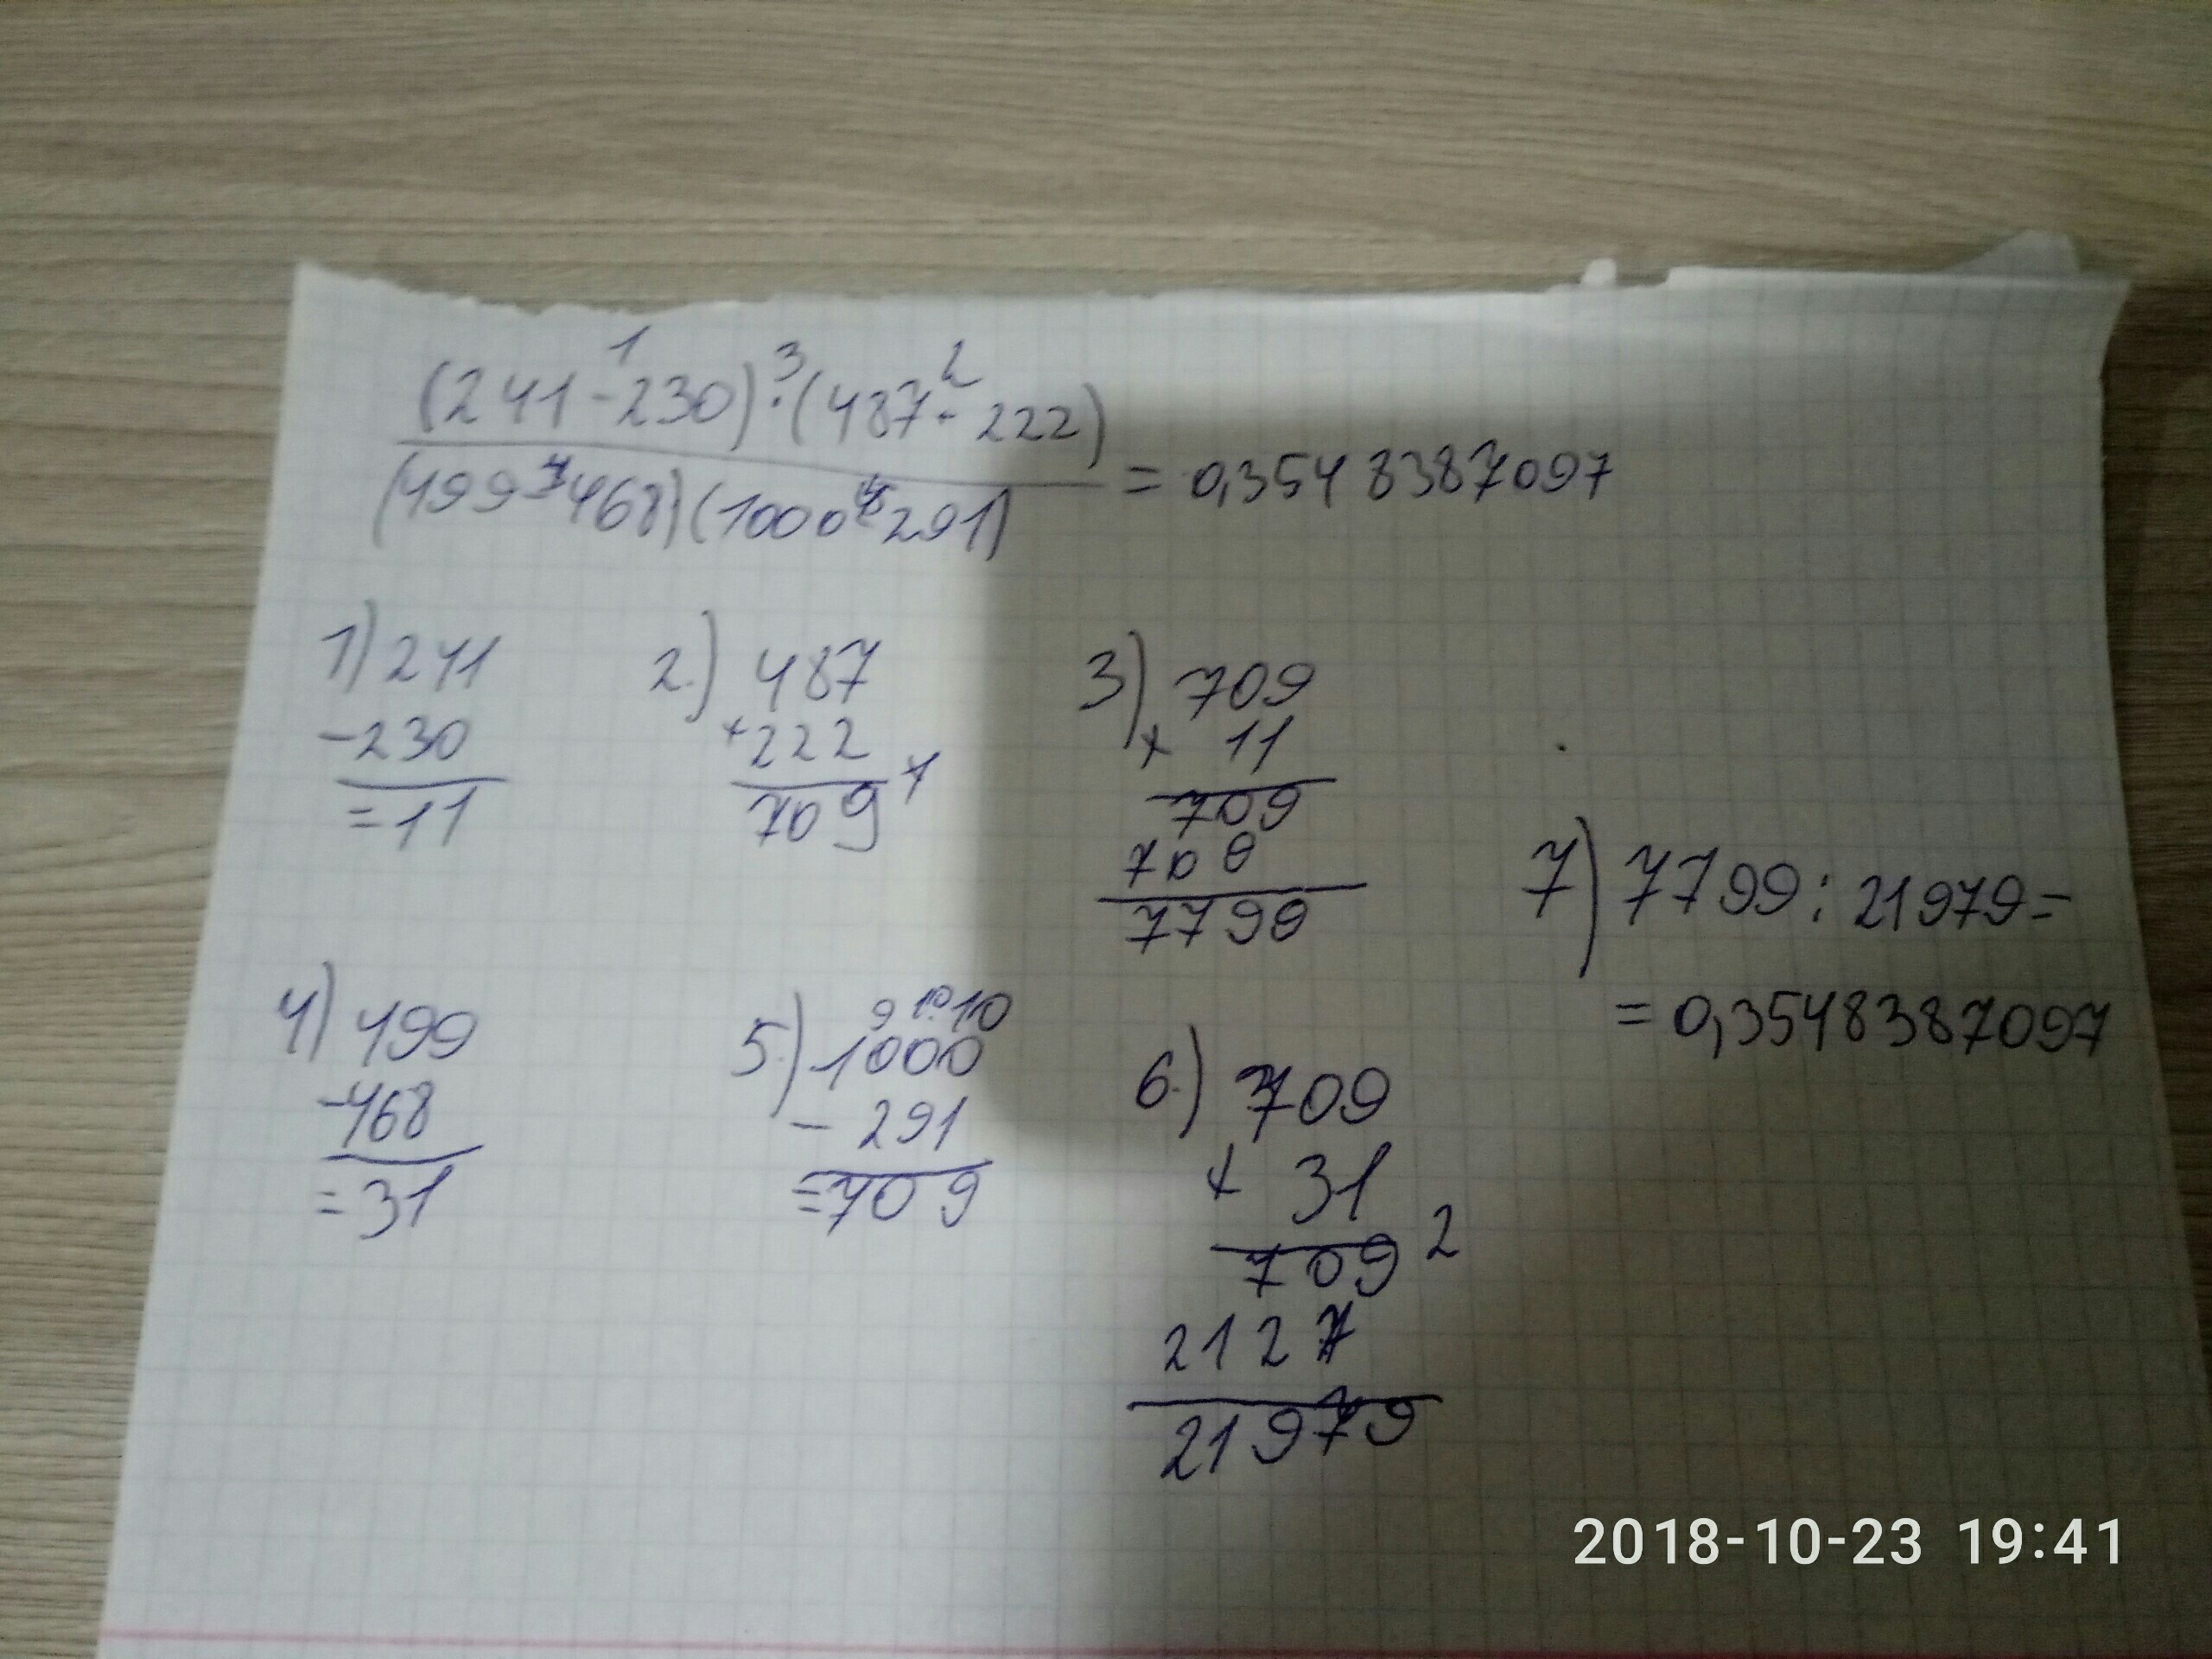 1 3 2
(241-230)·(487-222)
(499-468)(1000-291) = 0,35483387097
1) 241
-230
=11
2.) 487
+222
709
3) 709
x 11
709
709
7799
4) 499
-468
=31
5.) 9 10 10
1000
- 291
=709
6.) 709
x 31
709 2
2127
21979
7) 7799:21979=
=0,35483387097
2018-10-23 19:41